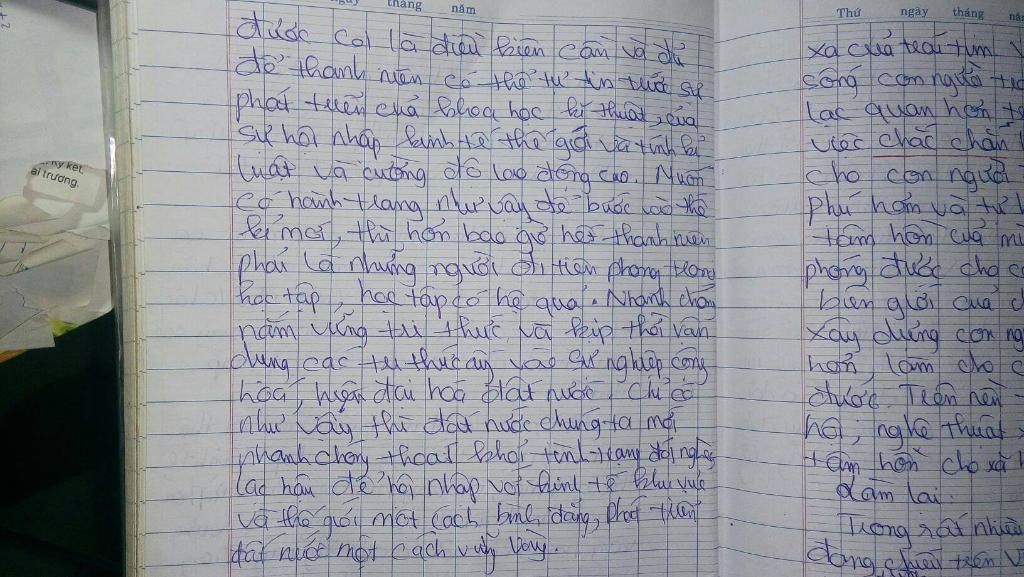 tháng năm
được coi là điều kiện cần và đủ
để thanh niên có thể tự tin trước sự
phát triển của khoa học kĩ thuật, của
sự hội nhập kinh tế thế giới và tính kỉ
luật và cường độ lao động cao. Muốn
có hành trang như vậy để bước vào thế
kỉ mới, thì hơn bao giờ hết thanh niên
phải là những người đi tiên phong trong
học tập, học tập có hệ quả. Nhanh chóng
nắm vững tri thức và kịp thời vận
dụng các tri thức ấy vào sự nghiệp công
hóa, hiện đại hoá đất nước. Chỉ có
như vậy thì đất nước chúng ta mới
nhanh chóng thoát khỏi tình trạng đói nghèo
lạc hậu để hội nhập với kinh tế khu vực
và thế giới một cách bình đẳng, phát triển
đất nước một cách vững vàng.
ký kết,
ai trương.
Thứ ngày tháng
xa của trái tim
sống con người
lạc quan hơn
việc chắc chắn
cho con người
phú hơn và tự
tâm hồn của
phóng được cho
biên giới của
xây dựng con
hơn, làm cho
được. Trên nền
hội, nghệ thuật
tâm hồn cho xã
Tóm lại:
Trong rất nhiều
động, chuẩn